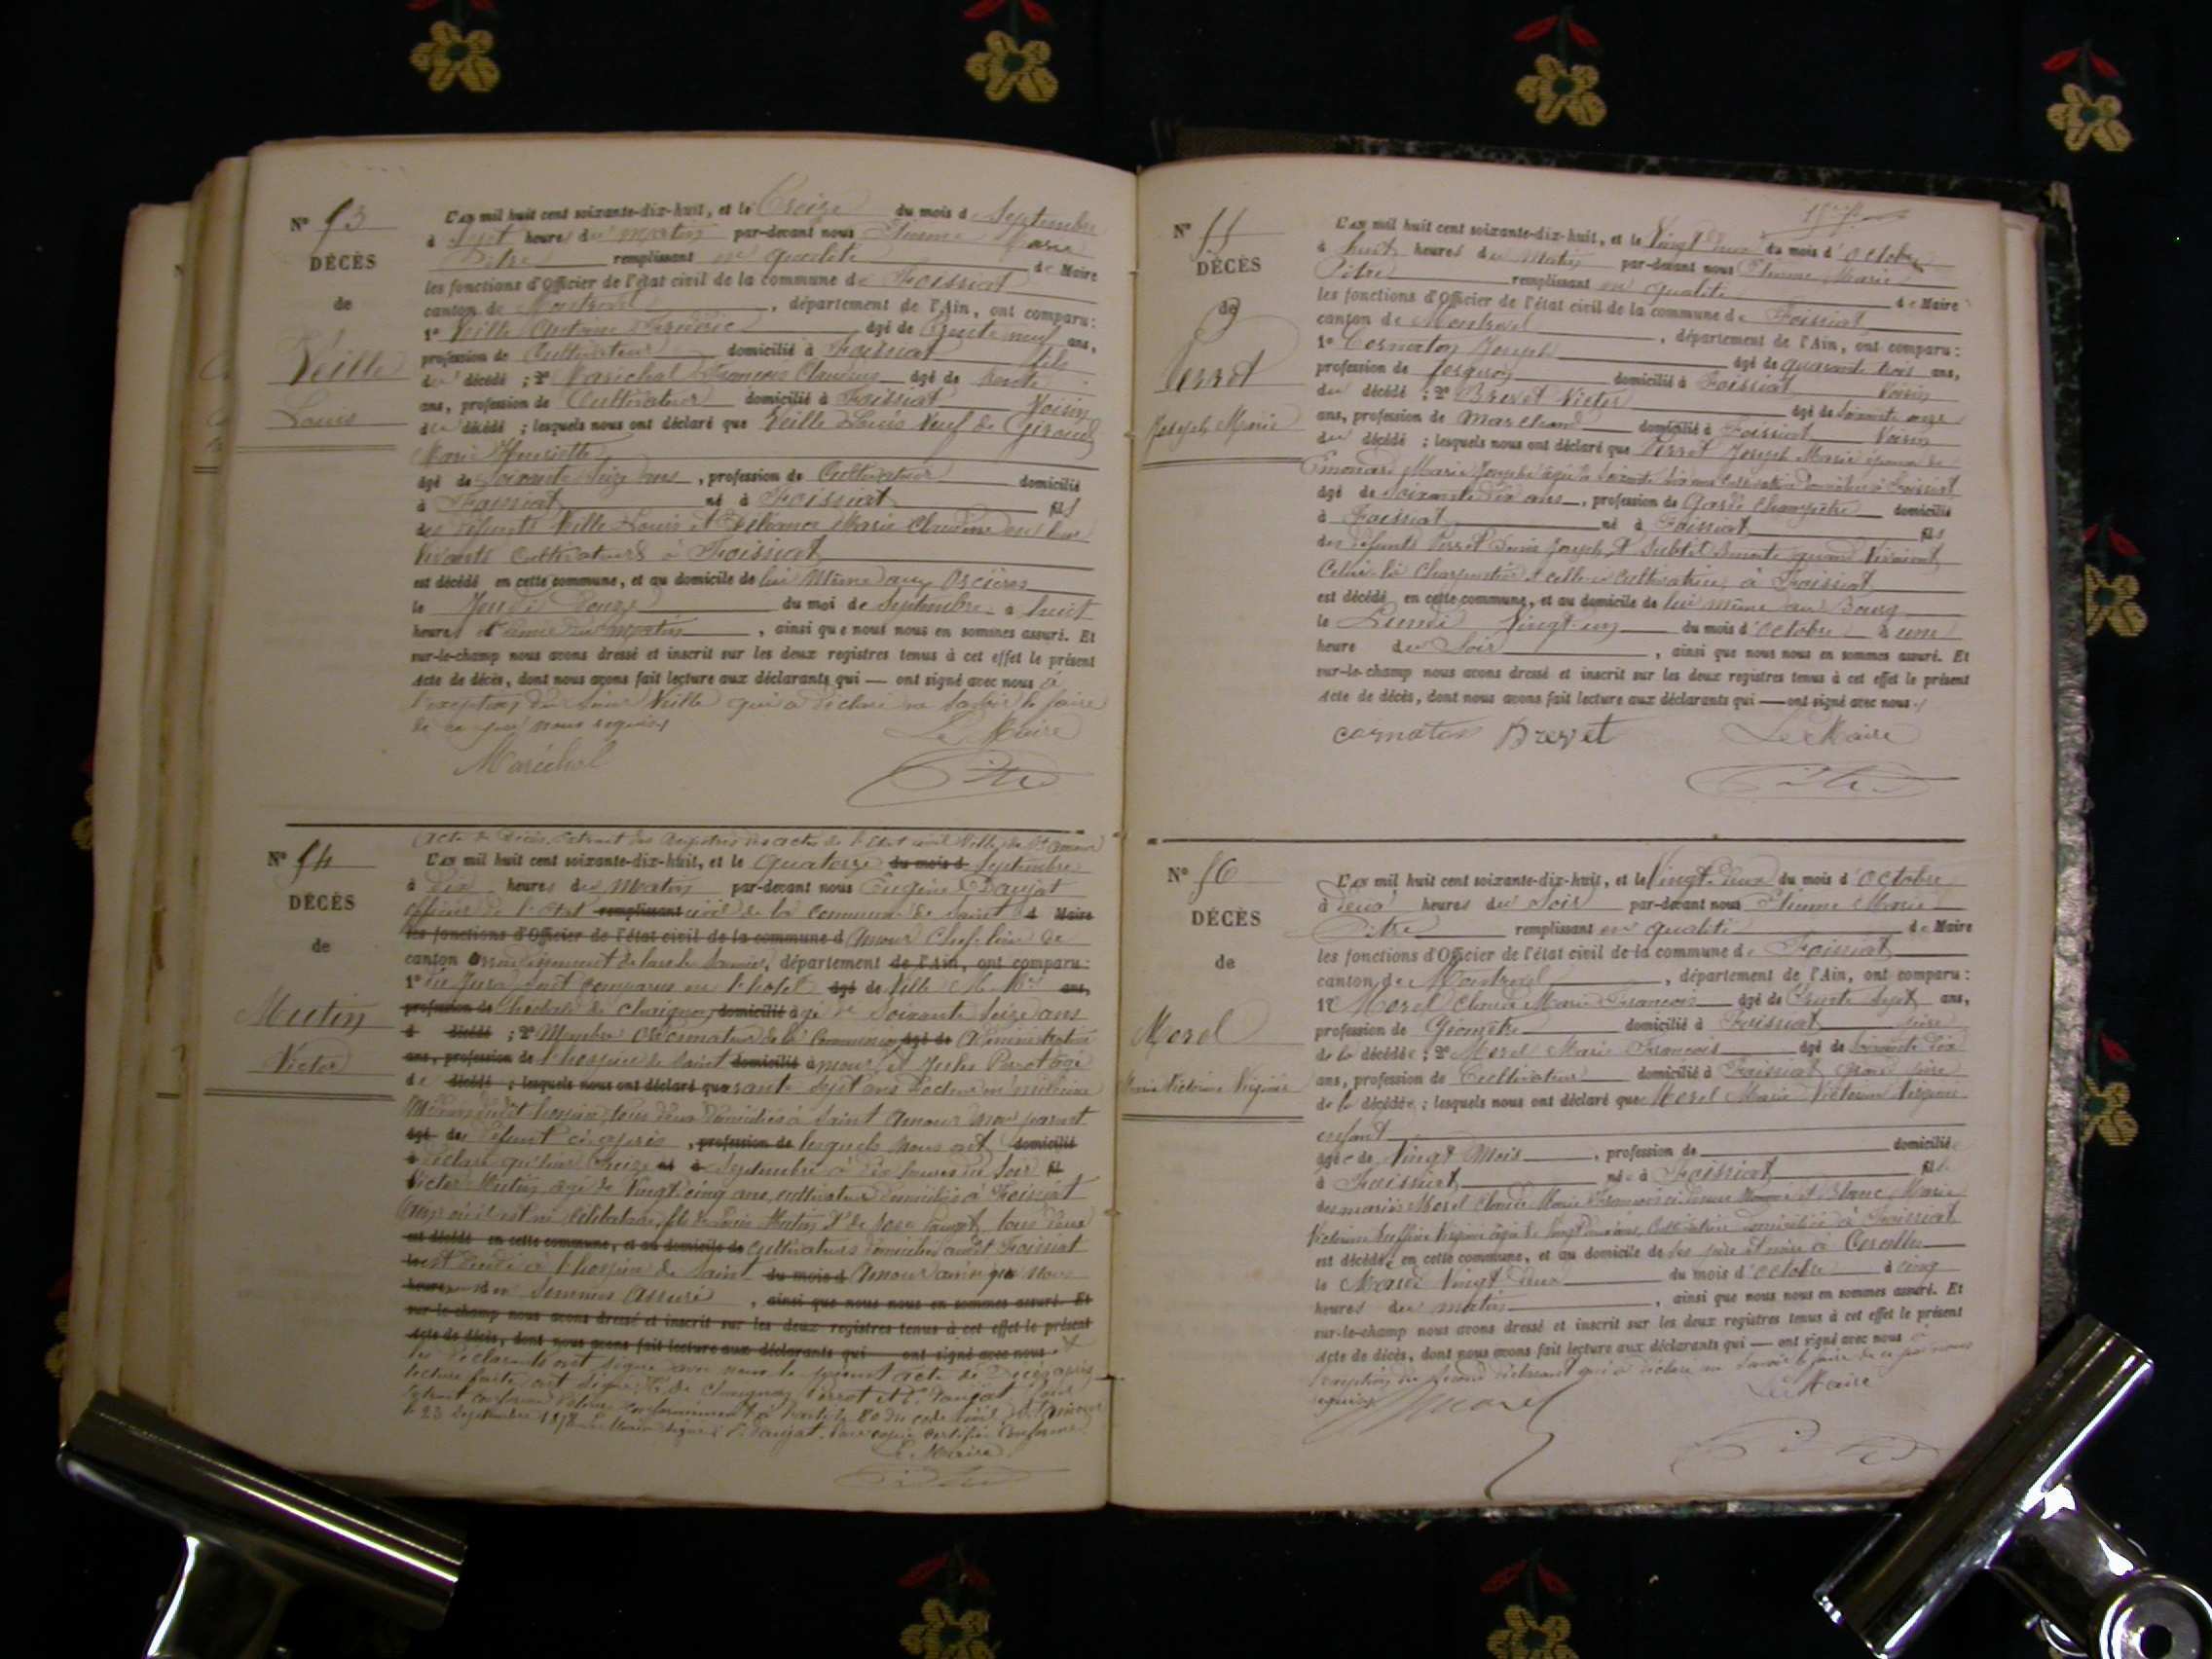 N° 53
DÉCÈS
de
Veille
Louis
L'an mil huit cent soixante-dix-huit, et le Treize du mois de Septembre
à Sept heures du matin par-devant nous Etienne Marie
Pitre remplissant en qualité de Maire
les fonctions d'Officier de l'état civil de la commune de Foissiat
canton de Montrevel, département de l'Ain, ont comparu :
1° Veille Antoine Frédéric âgé de Trente neuf ans,
profession de Cultivateur domicilié à Foissiat fils
du décédé ; 2° Maréchal François Claudius âgé de trente
ans, profession de Cultivateur domicilié à Foissiat Voisin
du décédé ; lesquels nous ont déclaré que Veille Louis Veuf de Giraud
Marie Henriette
âgé de Soixante Seize ans, profession de Cultivateur domicilié
à Foissiat né à Foissiat fils
des défunts Veille Louis et Marie Claudine de leur
vivants Cultivateurs à Foissiat
est décédé en cette commune, et au domicile de lui même aux Orcières
le Jeudi douze du moi de Septembre à huit
heures et demie du matin, ainsi que nous nous en sommes assuré. Et
sur-le-champ nous avons dressé et inscrit sur les deux registres tenus à cet effet le présent
acte de décès, dont nous avons fait lecture aux déclarants qui — ont signé avec nous à
l'exception du Sieur Veille qui a déclaré ne savoir le faire
de ce par nous requis
Le Maire
Maréchal
Pitre
N° 54
DÉCÈS
de
Mutin
Victor
Acte de Décès, extrait des Registres des actes de l'Etat civil Ville de St Amour
L'an mil huit cent soixante-dix-huit, et le quatorze du mois d Septembre
à Dix heures du matin par-devant nous Eugène Daujat
officier de l'état remplissant civil de la commune de Saint d Maire
les fonctions d'Officier de l'état civil de la commune d Amour Chef-lieu de
canton arrondissement de Lons le Saunier, département de l'Ain, ont comparu :
1° du Jura, sont comparus en l'hotel âgé de Ville ans,
profession de de domicilié âgé de Soixante Seize ans
décédé ; 2° Membre ordonnateur de la Commission âgé de administrative
ans, profession de l'hospice de Saint domicilié amour, et Jules Perrot âgé
de décédé ; lesquels nous ont déclaré quarante sept ans Docteur en médecine
dudit hospice, tous deux domiciliés à Saint Amour non parents
âgé du défunt ci après, profession de lesquels nous ont domicilié
déclaré qu'hier treize né à Septembre à dix heures du Soir fil
Victor Mutin âgé de Vingt cinq ans cultivateur domicilié à Foissiat
où il est né célibataire, fils de Mutin et de tous deux
est décédé en cette commune, et au domicile de cultivateurs domiciliés audit Foissiat
le est décédé à l'hospice de Saint du mois d Amour ainsi que nous
heures nous en Sommes Assuré, ainsi que nous nous en sommes assuré. Et
sur-le-champ nous avons dressé et inscrit sur les deux registres tenus à cet effet le présent
acte de décès, dont nous avons fait lecture aux déclarants qui ont signé avec nous et
les déclarants ont signé avec nous le présent acte de Décès après
lecture faite ont signé de Perrot et E. Daujat pour
extrait conforme conformément à l'article 80 du code civil St Amour
le 23 Septembre 1878 Le Maire signé E. Daujat. Pour copie certifiée conforme
Le Maire
Pitre
N° 55
DÉCÈS
de
Perrot
Joseph Marie
L'an mil huit cent soixante-dix-huit, et le Vingt deux du mois d'Octobre
à huit heures du Matin par-devant nous Etienne Marie
Pitre remplissant en qualité de Maire
les fonctions d'Officier de l'état civil de la commune de Foissiat
canton de Montrevel, département de l'Ain, ont comparu :
1° Cornaton Joseph âgé de quarante trois ans,
profession de domicilié à Foissiat Voisin
du décédé ; 2° Brevet Victor âgé de Soixante onze
ans, profession de Marchand domicilié à Foissiat Voisin
du décédé ; lesquels nous ont déclaré que Perrot Joseph Marie époux de
Marie Josephe âgée de Soixante dix ans domiciliée à Foissiat
âgé de Soixante dix ans, profession de Garde Champêtre domicilié
à Foissiat né à Foissiat fils
des défunts Perrot Denis Joseph et Benoite quand vivaient
Celui-là Charpentier et celle-ci cultivatrice à Foissiat
est décédé en cette commune, et au domicile de lui même au Bourg
le Lundi Vingt un du mois d'Octobre à une
heure du Soir, ainsi que nous nous en sommes assuré. Et
sur-le-champ nous avons dressé et inscrit sur les deux registres tenus à cet effet le présent
acte de décès, dont nous avons fait lecture aux déclarants qui — ont signé avec nous
cornaton Brevet Le Maire
Pitre
N° 56
DÉCÈS
de
Morel
Marie Victorine Virginie
L'an mil huit cent soixante-dix-huit, et le Vingt-deux du mois d'Octobre
à deux heures du Soir par-devant nous Etienne Marie
Pitre remplissant en qualité de Maire
les fonctions d'Officier de l'état civil de la commune de Foissiat
canton de Montrevel, département de l'Ain, ont comparu :
1° Morel Claude Marie François âgé de Trente Sept ans,
profession de Géomètre domicilié à Foissiat père
de la décédée ; 2° Morel Marie François âgé de Soixante dix
ans, profession de Cultivateur domicilié à Foissiat grand père
de la décédée ; lesquels nous ont déclaré que Morel Marie Victorine Virginie
enfant
âgée de Vingt Mois, profession de domicilié
à Foissiat née à Foissiat fil
des mariés Morel Claude Marie François ci dessus nommé et Blanc Marie
Victorine Virginie âgée de Vingt ans, Cultivatrice domiciliée à Foissiat
est décédée en cette commune, et au domicile de Ses père et mère à
le Mardi Vingt deux du mois d'Octobre à cinq
heures du matin, ainsi que nous nous en sommes assuré. Et
sur-le-champ nous avons dressé et inscrit sur les deux registres tenus à cet effet le présent
acte de décès, dont nous avons fait lecture aux déclarants qui — ont signé avec nous à
l'exception du Second déclarant qui a déclaré ne savoir le faire de ce par nous
requis
Le Maire
Morel
Pitre